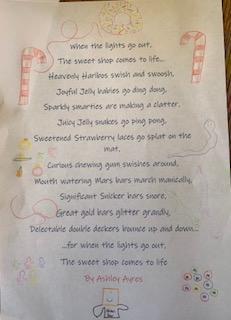 When the lights go out,
The sweet shop comes to life...
Heavenly Haribos swish and swoosh,
Joyful Jelly babies go ding dong,
Sparkly smarties are making a clatter,
Juicy Jelly snakes go ping pong,
Sweetened Strawberry laces go splat on the
mat,
Curious chewing gum swishes around,
Mouth watering Mars bars march manically,
Significant Snicker bars snore,
Great gold bars glitter grandly,
Delectable double deckers bounce up and down...
...for when the lights go out,
The sweet shop comes to life
By Ashley Ayres